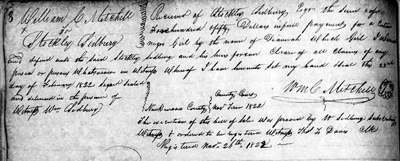 William C Mitchell
to
Stokley Sidbury
Received of Stokley Sidbury, Esqr the sum of
Two hundred fifty, Dollars in full payment for a
negro Girl by the name of Dianah Which Girl I
and defend unto the said Stokley Sidbury and his heirs forever Clear of all Claims of any
person or persons Whatsoever in Witness Whereof I have hereunto set my hand this the 23rd
day of February 1822 Signed Sealed
and delivered in the presence of
Witness Wm Sidbury
Wm C Mitchell
County Court
New Hanover County Nov Term 1822
The execution of this bill of Sale was proved by W Sidbury
Witness & ordered to be registered Witness Thos F Davis Clk
Registered Novr 28th 1822